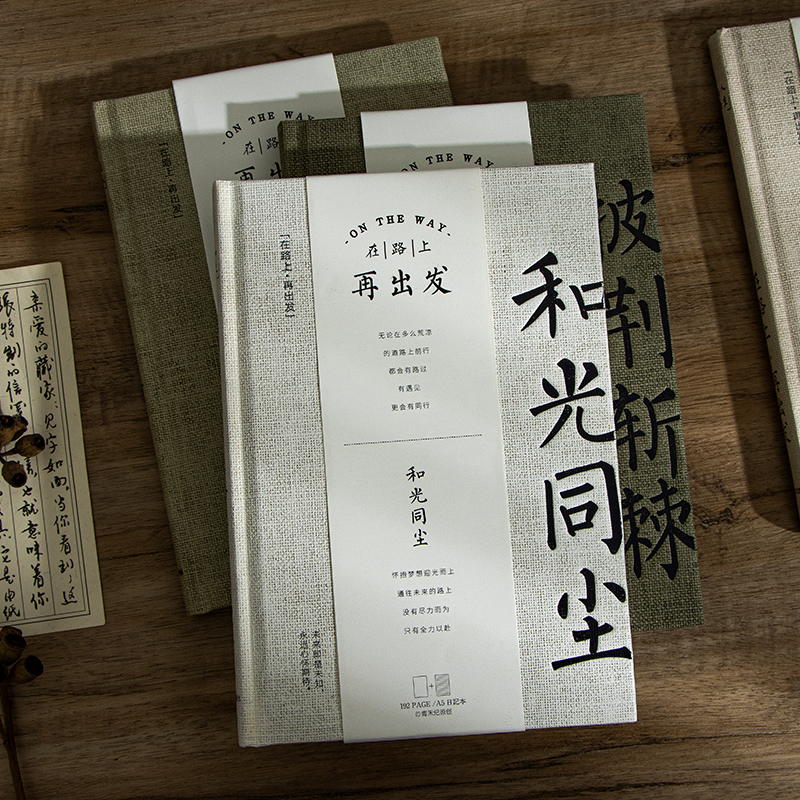 -ON THE WAY-
在|路|上
再出发
无论在多么荒凉
的道路上前行
都会有路过
有遇见
更会有同行
和光同尘
怀抱梦想迎光而上
通往未来的路上
没有尽力而为
只有全力以赴
192 PAGE / A5 日记本
「在路上·再出发」
和光同尘
-ON THE WAY
在|路
再出
「在路上·再出发」
ON THE WAY
披荆斩棘
「在路上·再出发」
亲爱的藏家：见字如面，当你看到这
也就意味着你